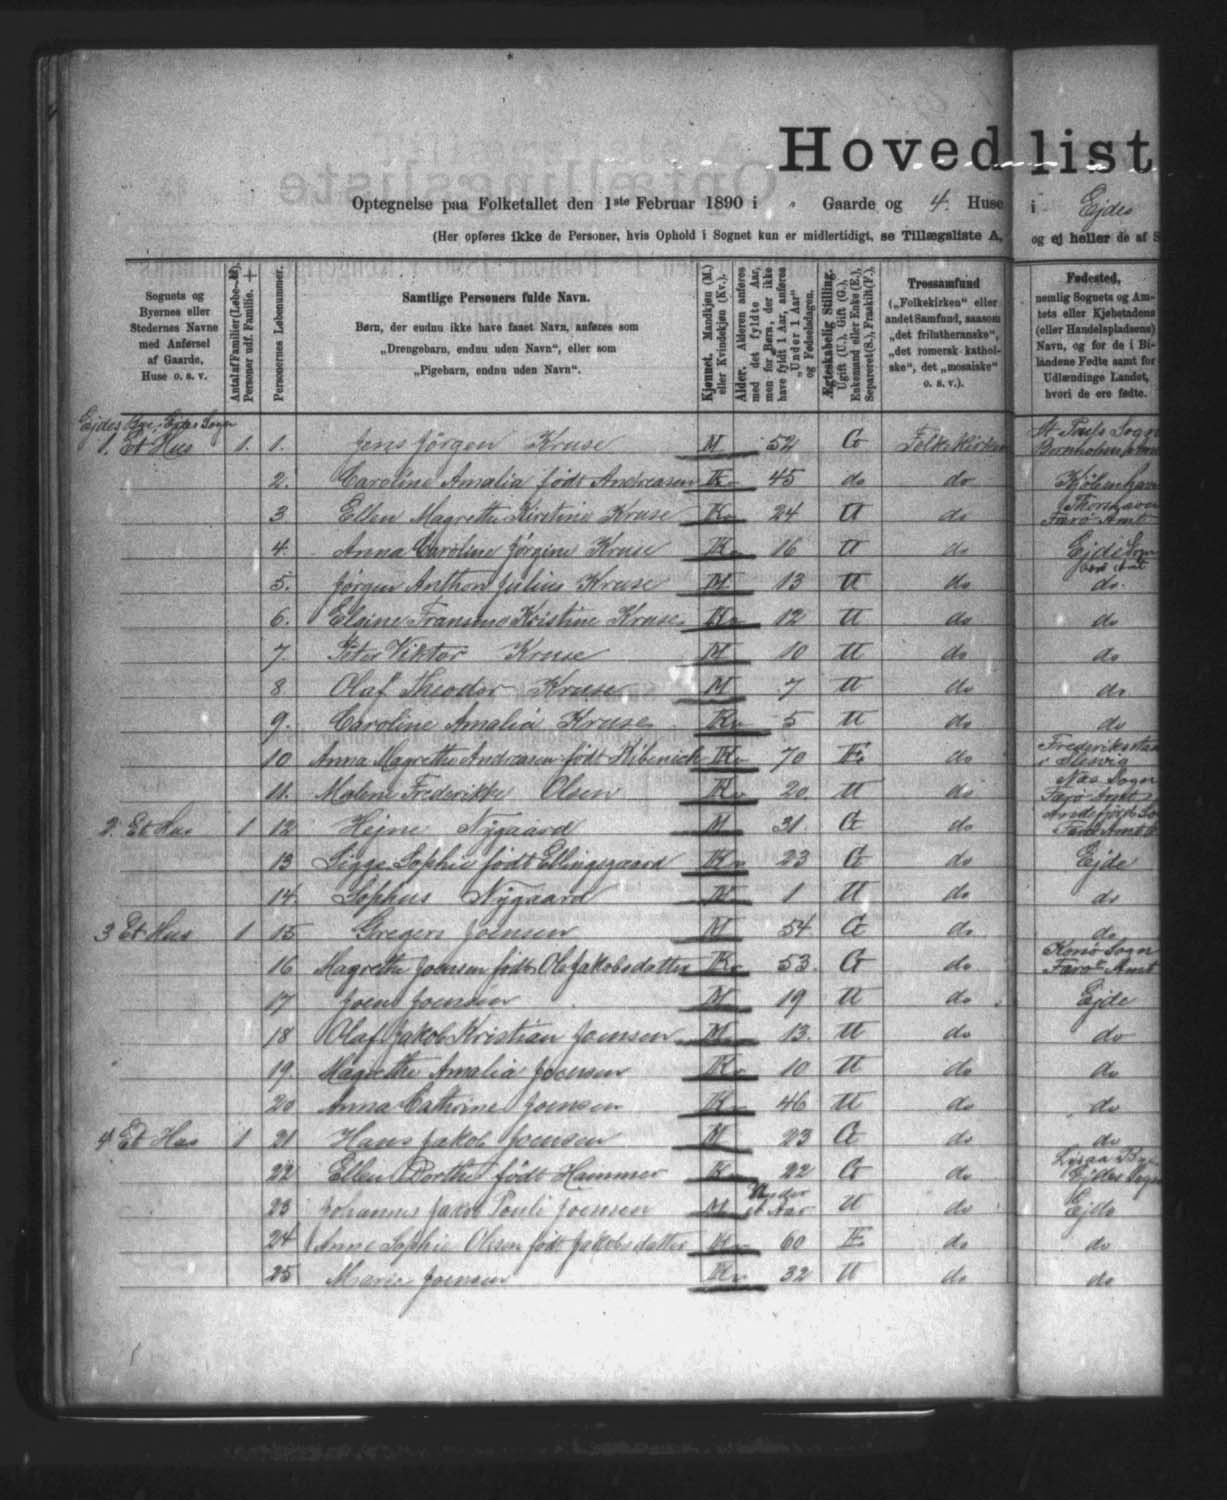 Hovedlist
Optegnelse paa Folketallet den 1ste Februar 1890 i „ Gaarde og 4. Huse i Ejdes
(Her opføres ikke de Personer, hvis Ophold i Sognet kun er midlertidigt, se Tillægsliste A, og ej heller de af S
Sognets og Byernes eller Stedernes Navne med Anførsel af Gaarde, Huse o. s. v.
Antal af Familier
Personer udf. Familie.
Personernes Løbenummer.
Samtlige Personers fulde Navn.
Børn, der endnu ikke have faaet Navn, anføres som
„Drengebarn, endnu uden Navn“, eller som
„Pigebarn, endnu uden Navn“.
Kjønnet. Mandkjøn (M.) eller Kvindekjøn (Kv.).
Alder. Alderen anføres med det fyldte Aar, men for Børn, der ikke have fyldt 1 Aar, anføres „Under 1 Aar“ og Fødselsdagen.
Ægteskabelig Stilling. Ugift (U.), Gift (G.), Enkemand eller Enke (E.), Separeret (S.), Fraskilt (F.).
Trossamfund
(„Folkekirken“ eller andet Samfund, saasom „det frilutheranske“, „det romersk katholske“, det „mosaiske“ o. s. v.).
Fødested,
nemlig Sognets og Amtets eller Kjøbstadens (eller Handelspladsens) Navn, og for de i Bilandene Fødte samt for Udlændinge Landet, hvori de ere fødte.
Ejdes Bye, Ejdes Sogn
1. Et Hus 1. 1. Jens Jørgen Kruse M 52 G Folkekirken
2. Caroline Amalia født Andreasen Kv 45 do do København
3 Ellen Magrethe Kirstine Kruse Kv 24 U do Thorshavn Færø Amt
4. Anna Caroline Jørgine Kruse Kv 16 U do Ejde Sogn
5. Jørgen Anthon Julius Kruse M 13 U do do.
6. Kristine Kruse Kv 12 U do do
7. Peter Viktor Kruse M 10 U do do
8 Olaf Theodor Kruse M 7 U do do
9. Caroline Amalia Kruse Kv 5 U do do
10 Anna Magrethe Andreasen født Kv 70 E do i Slesvig
11. Malene Frederikke Olsen Kv 20 U do Næs Sogn Færø Amt
2. Et Hus 1 12 Hejne Nygaard M 31 G do
13 Sigge Sophie født Ellingsgaard Kv 23 G do Ejde
14. Sophus Nygaard M 1 U do do
3 Et Hus 1 15 Gregers Joensen M 54 G do do
16 Magrethe Joensen født Ole Jakobsdatter Kv 53 G do Kunø Sogn Færø Amt
17 Joen Joensen M 19 U do Ejde
18 Olaf Jakob Kristian Joensen M 13. U do do
19. Magrethe Amalia Joensen Kv 10 U do do
20 Anna Cathrine Joensen Kv 46 U do do
4 Et Hus 1 21 Hans Jakob Joensen M 23 G do do
22 Ellen Dorthe født Hammer Kv 22 G do Ejdes Sogn
23 Johannes Jakob Pouli Joensen M Under et Aar U do Ejde
24 Anne Sophie Olsen født Jakobsdatter Kv 60 E do do
25 Marie Joensen Kv 32 U do do